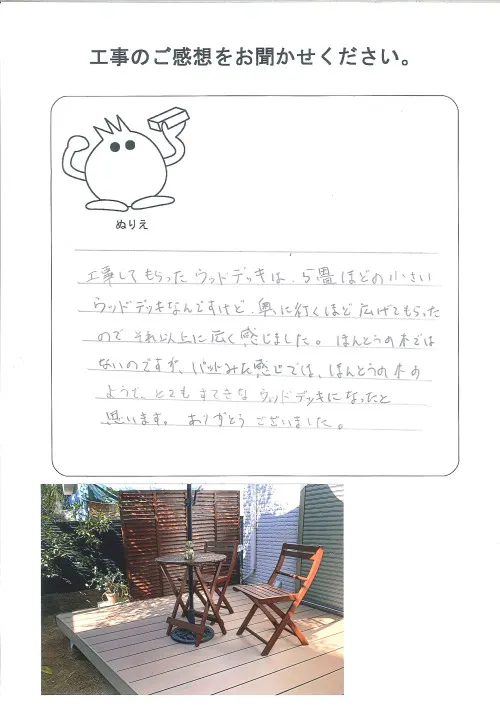 工事のご感想をお聞かせください。
ぬりえ
工事してもらったウッドデッキは、5畳ほどの小さい
ウッドデッキなんですけど、奥に行くほど広げてもらった
のでそれ以上に広く感じました。ほんとうの木では
ないのですが、パットみた感じでは、ほんとうの木の
ようで、とてもすてきなウッドデッキになったと
思います。ありがとうございました。